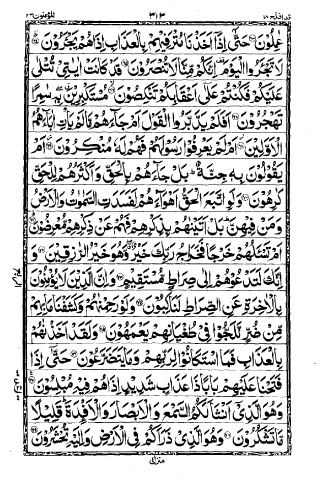 قد افلح ١٨ ٣١٣ المؤمنون ٢٣
عٰمِلُوْنَ ۝ حَتّٰۤى اِذَاۤ اَخَذْنَا مُتْرَفِیْهِمْ بِالْعَذَابِ اِذَا هُمْ یَجْـَٔرُوْنَ ۝
لَا تَجْـَٔرُوا الْیَوْمَ ۫ اِنَّكُمْ مِّنَّا لَا تُنْصَرُوْنَ ۝ قَدْ كَانَتْ اٰیٰتِیْ تُتْلٰى
عَلَیْكُمْ فَكُنْتُمْ عَلٰۤى اَعْقَابِكُمْ تَنْكِصُوْنَ ۝ مُسْتَكْبِرِیْنَ ۖۗ بِهٖ سٰمِرًا
تَهْجُرُوْنَ ۝ اَفَلَمْ یَدَّبَّرُوا الْقَوْلَ اَمْ جَآءَهُمْ مَّا لَمْ یَاْتِ اٰبَآءَهُمُ
الْاَوَّلِیْنَ ۝ اَمْ لَمْ یَعْرِفُوْا رَسُوْلَهُمْ فَهُمْ لَهٗ مُنْكِرُوْنَ ۝ اَمْ
یَقُوْلُوْنَ بِهٖ جِنَّةٌ ؕ بَلْ جَآءَهُمْ بِالْحَقِّ وَ اَكْثَرُهُمْ لِلْحَقِّ
كٰرِهُوْنَ ۝ وَ لَوِ اتَّبَعَ الْحَقُّ اَهْوَآءَهُمْ لَفَسَدَتِ السَّمٰوٰتُ وَ الْاَرْضُ
وَ مَنْ فِیْهِنَّ ؕ بَلْ اَتَیْنٰهُمْ بِذِكْرِهِمْ فَهُمْ عَنْ ذِكْرِهِمْ مُّعْرِضُوْنَ ۝
اَمْ تَسْـَٔلُهُمْ خَرْجًا فَخَرَاجُ رَبِّكَ خَیْرٌ ۖۗ وَّ هُوَ خَیْرُ الرّٰزِقِیْنَ ۝ وَ
اِنَّكَ لَتَدْعُوْهُمْ اِلٰى صِرَاطٍ مُّسْتَقِیْمٍ ۝ وَ اِنَّ الَّذِیْنَ لَا یُؤْمِنُوْنَ
بِالْاٰخِرَةِ عَنِ الصِّرَاطِ لَنٰكِبُوْنَ ۝ وَ لَوْ رَحِمْنٰهُمْ وَ كَشَفْنَا مَا بِهِمْ
مِّنْ ضُرٍّ لَّلَجُّوْا فِیْ طُغْیَانِهِمْ یَعْمَهُوْنَ ۝ وَ لَقَدْ اَخَذْنٰهُمْ
بِالْعَذَابِ فَمَا اسْتَكَانُوْا لِرَبِّهِمْ وَ مَا یَتَضَرَّعُوْنَ ۝ حَتّٰۤى اِذَا
فَتَحْنَا عَلَیْهِمْ بَابًا ذَا عَذَابٍ شَدِیْدٍ اِذَا هُمْ فِیْهِ مُبْلِسُوْنَ ۝
وَ هُوَ الَّذِیْۤ اَنْشَاَ لَكُمُ السَّمْعَ وَ الْاَبْصَارَ وَ الْاَفْـِٕدَةَ ؕ قَلِیْلًا
مَّا تَشْكُرُوْنَ ۝ وَ هُوَ الَّذِیْ ذَرَاَكُمْ فِی الْاَرْضِ وَ اِلَیْهِ تُحْشَرُوْنَ ۝